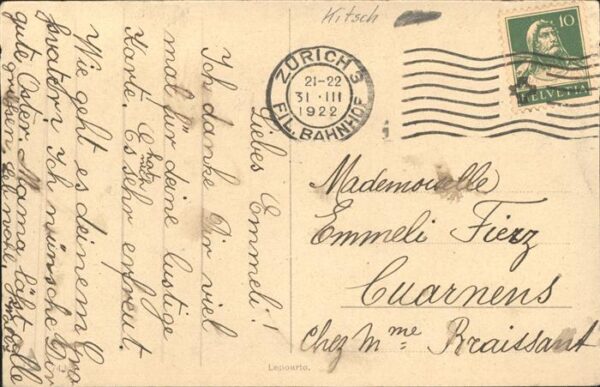 Kitsch
10
HELVETIA
ZÜRICH 3
21-22
31 III
1922
FIL. BAHNHOF
Liebes Emmeli!
Ich danke Dir viel
mal für deine lustige
Karte. Es hat mich sehr erfreut.
Wie geht es deinem Gro
svater? Ich wünsche Dir
gute Oster. Mama läßt alle
grüsen.
Mademoiselle
Emmeli Fierz
Cuarnens
chez Mme Braissant